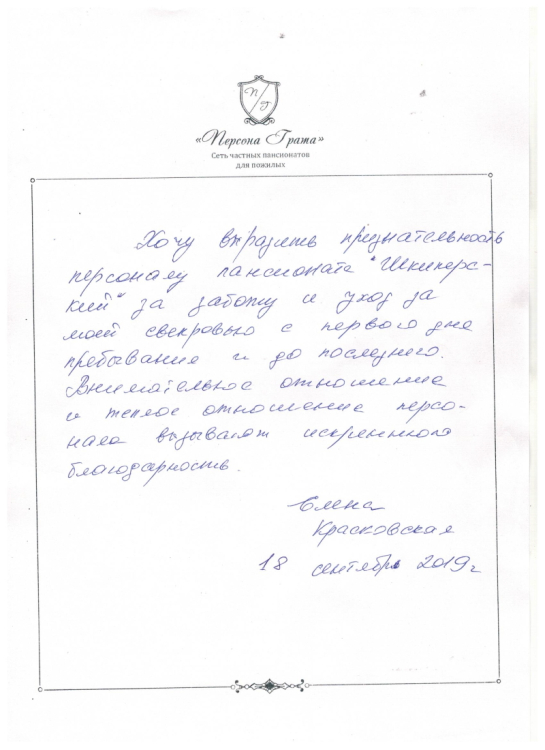 П Г
«Персона Грата»
Сеть частных пансионатов
для пожилых
Хочу выразить признательность
персоналу пансионата "Шкиперс-
кий" за заботу и уход за
моей свекровью с первого дня
пребывания и до последнего.
Внимательное отношение
и теплое отношение персо-
нала вызывают искреннюю
благодарность.
Елена
Красковская
18 сентябрь 2019г